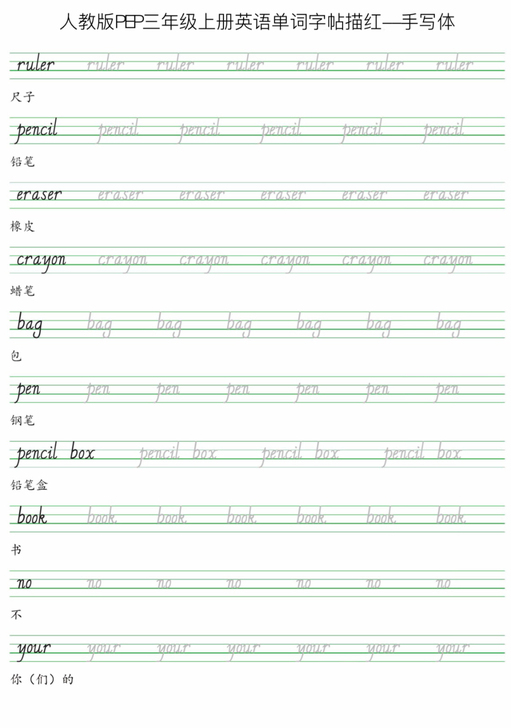 人教版PEP三年级上册英语单词字帖描红—手写体
ruler ruler ruler ruler ruler ruler ruler
尺子
pencil pencil pencil pencil pencil pencil
铅笔
eraser eraser eraser eraser eraser eraser
橡皮
crayon crayon crayon crayon crayon crayon
蜡笔
bag bag bag bag bag bag bag
包
pen pen pen pen pen pen pen
钢笔
pencil box pencil box pencil box pencil box
铅笔盒
book book book book book book book
书
no no no no no no no
不
your your your your your your your
你（们）的